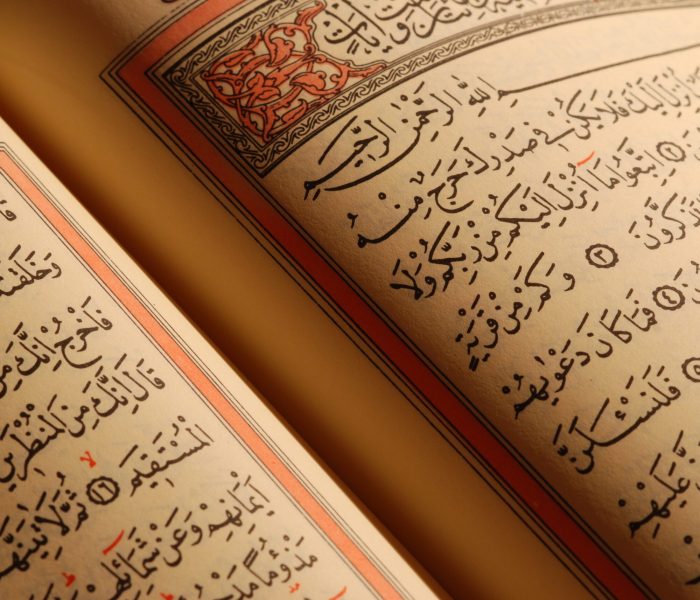 بِسْمِ اللهِ الرَّحْمٰنِ الرَّحِيمِ
اُنْزِلَ اِلَيْكَ فَلَا يَكُنْ فِي صَدْرِكَ حَرَجٌ مِنْهُ
اِتَّبِعُوا مَٓا اُنْزِلَ اِلَيْكُمْ مِنْ رَبِّكُمْ وَلَا
تَذَكَّرُونَ ٣ وَكَمْ مِنْ قَرْيَةٍ
٤ فَمَا كَانَ دَعْوٰيهُمْ
فَلَنَسْـَٔلَنَّ
عَلَيْهِمْ
وَخَلَقْتَهُ
فَاخْرُجْ اِنَّكَ مِنَ
قَالَ اِنَّكَ مِنَ الْمُنْظَرِينَ
الْمُسْتَقِيمَ ١٦ ثُمَّ لَاٰتِيَنَّهُمْ
اَيْمَانِهِمْ وَعَنْ شَمَٓائِلِهِمْ
مَذْؤُمًا